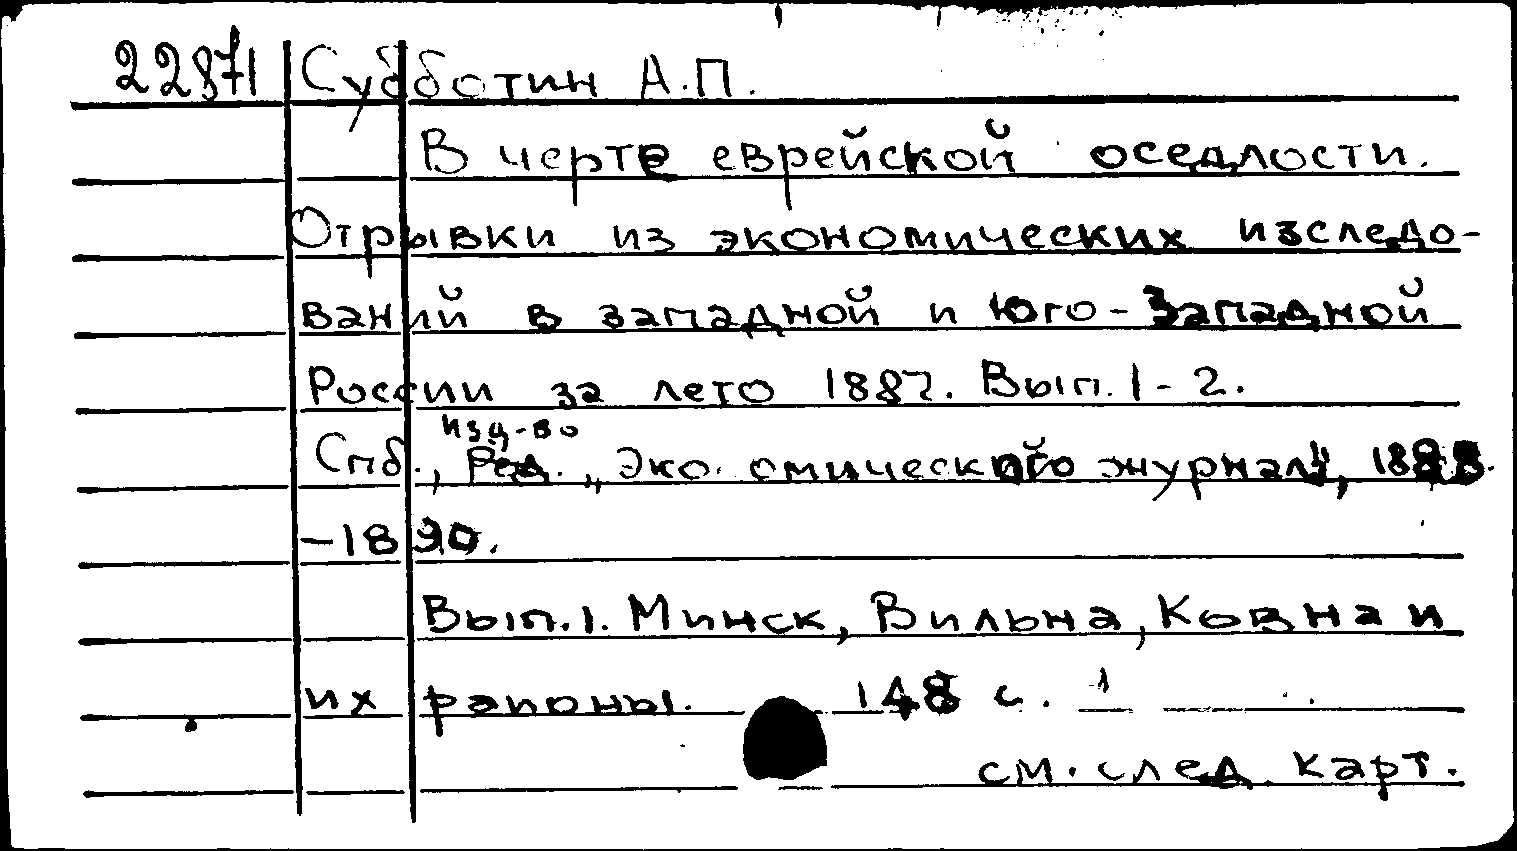 22871 Субботин А.П.
В черте еврейской оседлости.
Отрывки из экономических исследо-
ваний в западной и юго-западной
России за лето 1887. Вып. 1-2.
изд-во
Спб., Ред. „Эко омического журнала", 1888.
-1890.
Вып.1. Минск, Вильна, Ковна и
их районы. 148 с.
см. след. карт.